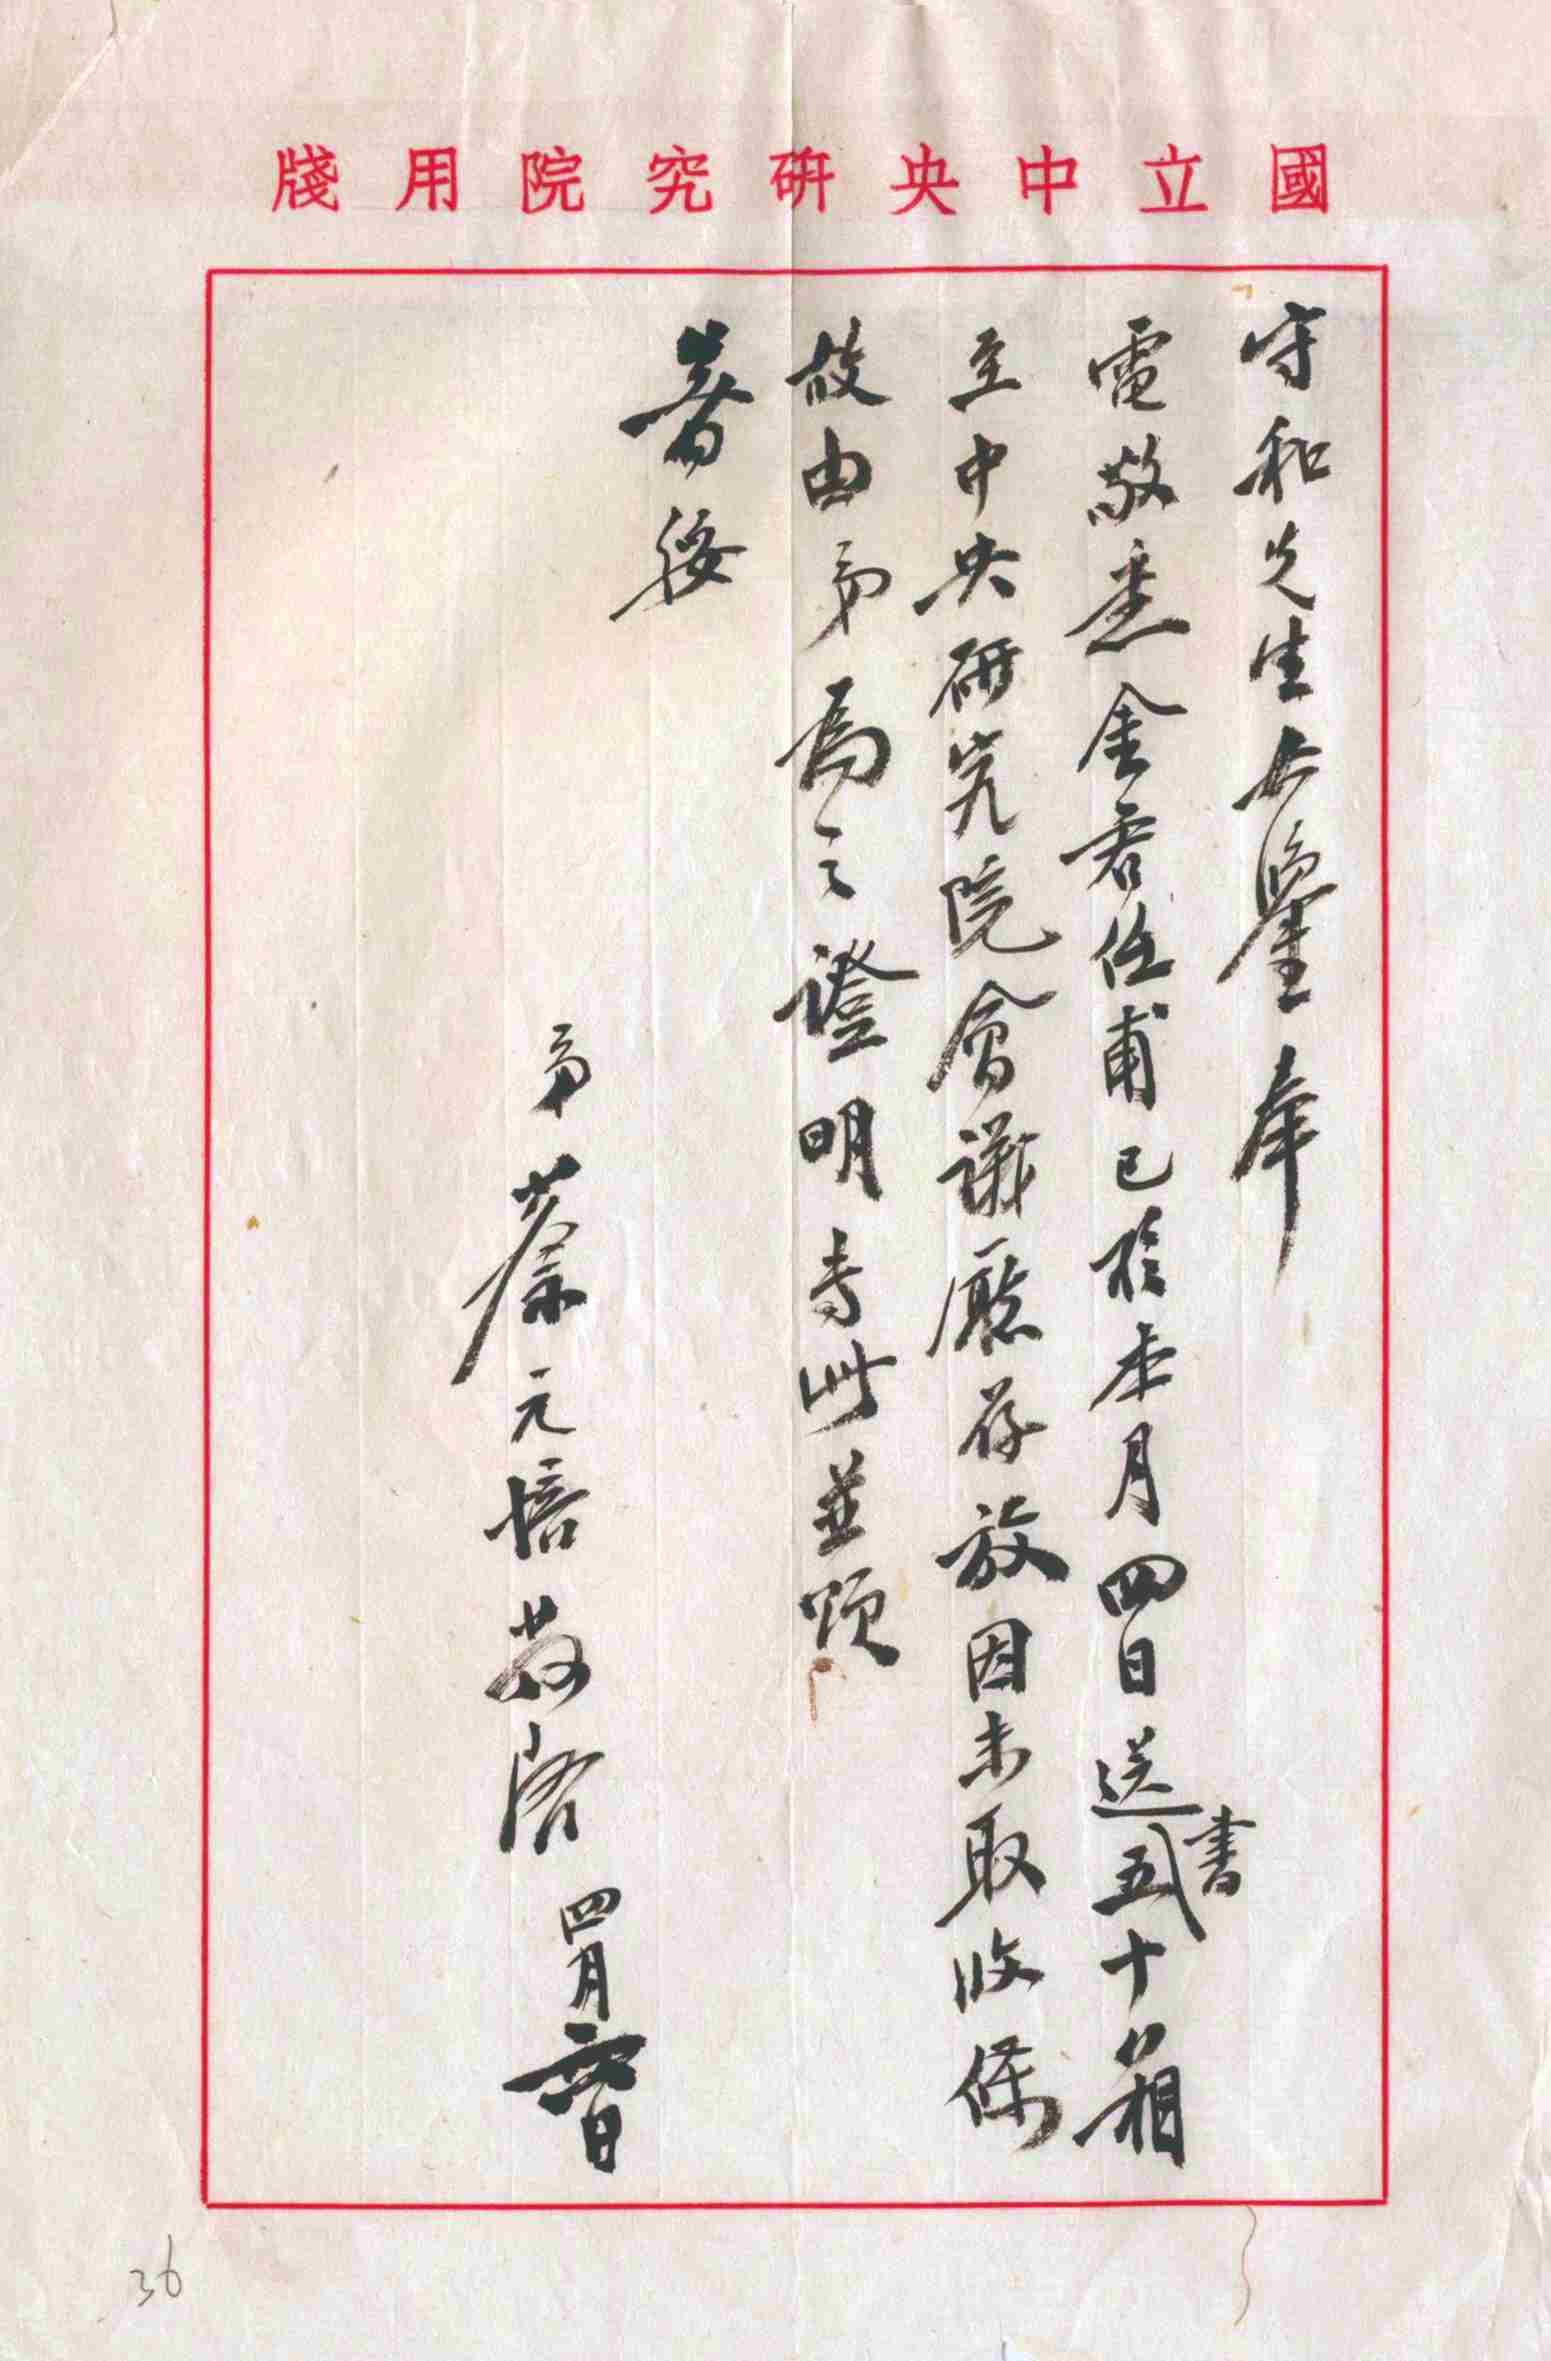 國立中央研究院用牋
守和先生大鑒奉
電敬悉金君任甫已於本月四日送書五十箱
至中央研究院會議廳存放因未取收條
故由弟爲之證明專此並頌
著綏
弟蔡元培敬啓 四月六日
36